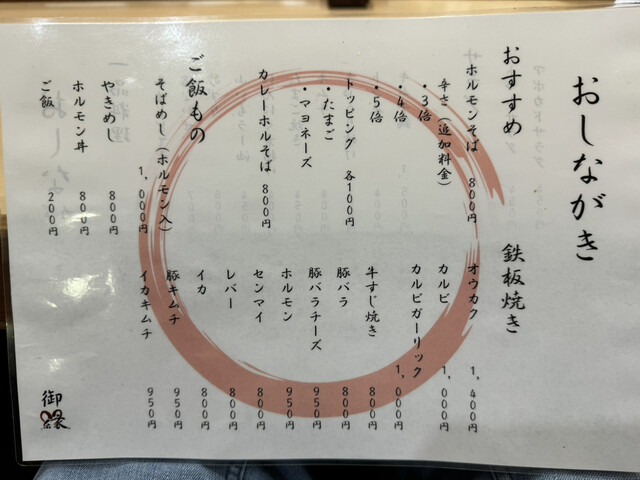 おしながき
おすすめ
ホルモンそば 800円
辛さ（追加料金）
・3倍
・4倍
・5倍
トッピング 各100円
・たまご
・マヨネーズ
カレーホルそば 800円
ご飯もの
そばめし（ホルモン入） 1,000円
やきめし 800円
ホルモン丼 800円
ご飯 200円
鉄板焼き
オウカク 1,400円
カルビ 1,000円
カルビガーリック 1,000円
牛すじ焼き 800円
豚バラ 800円
豚バラチーズ 950円
ホルモン 950円
センマイ 800円
レバー 800円
イカ 800円
豚キムチ 950円
イカキムチ 950円
御縁